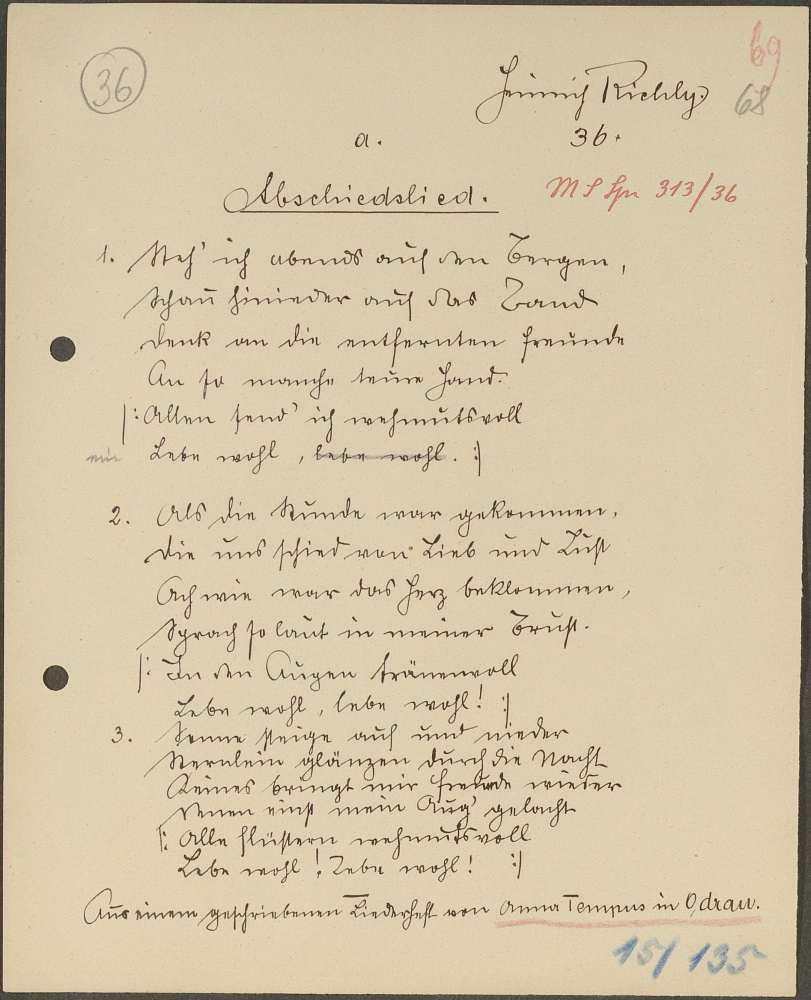 36
69
68
Heinrich Richly.
36.
a.
Abschiedslied.
M S Spr 313/36
1. Steh' ich abends auf den Bergen,
Schau hinieder auf das Land
Denk an die entfernten Freunde
An so manche teure Hand.
|: Allen send' ich wehmutsvoll
ein Lebe wohl, lebe wohl. :|
2. Als die Stunde war gekommen,
Die uns schied von Lieb und Lust
Ach wie war das Herz beklommen,
Sprach so laut in meiner Brust.
|: In den Augen tränenvoll
Lebe wohl, lebe wohl! :|
3. Sonne steige auf und nieder
Sternlein glänzen durch die Nacht
Keines bringt mir Freude wieder
Denen einst mein Aug' gelacht
|: Alle flüstern wehmutsvoll
Lebe wohl! Lebe wohl! :|
Aus einem geschriebenen Liederheft von Anna Tempus in Odrau.
15/135